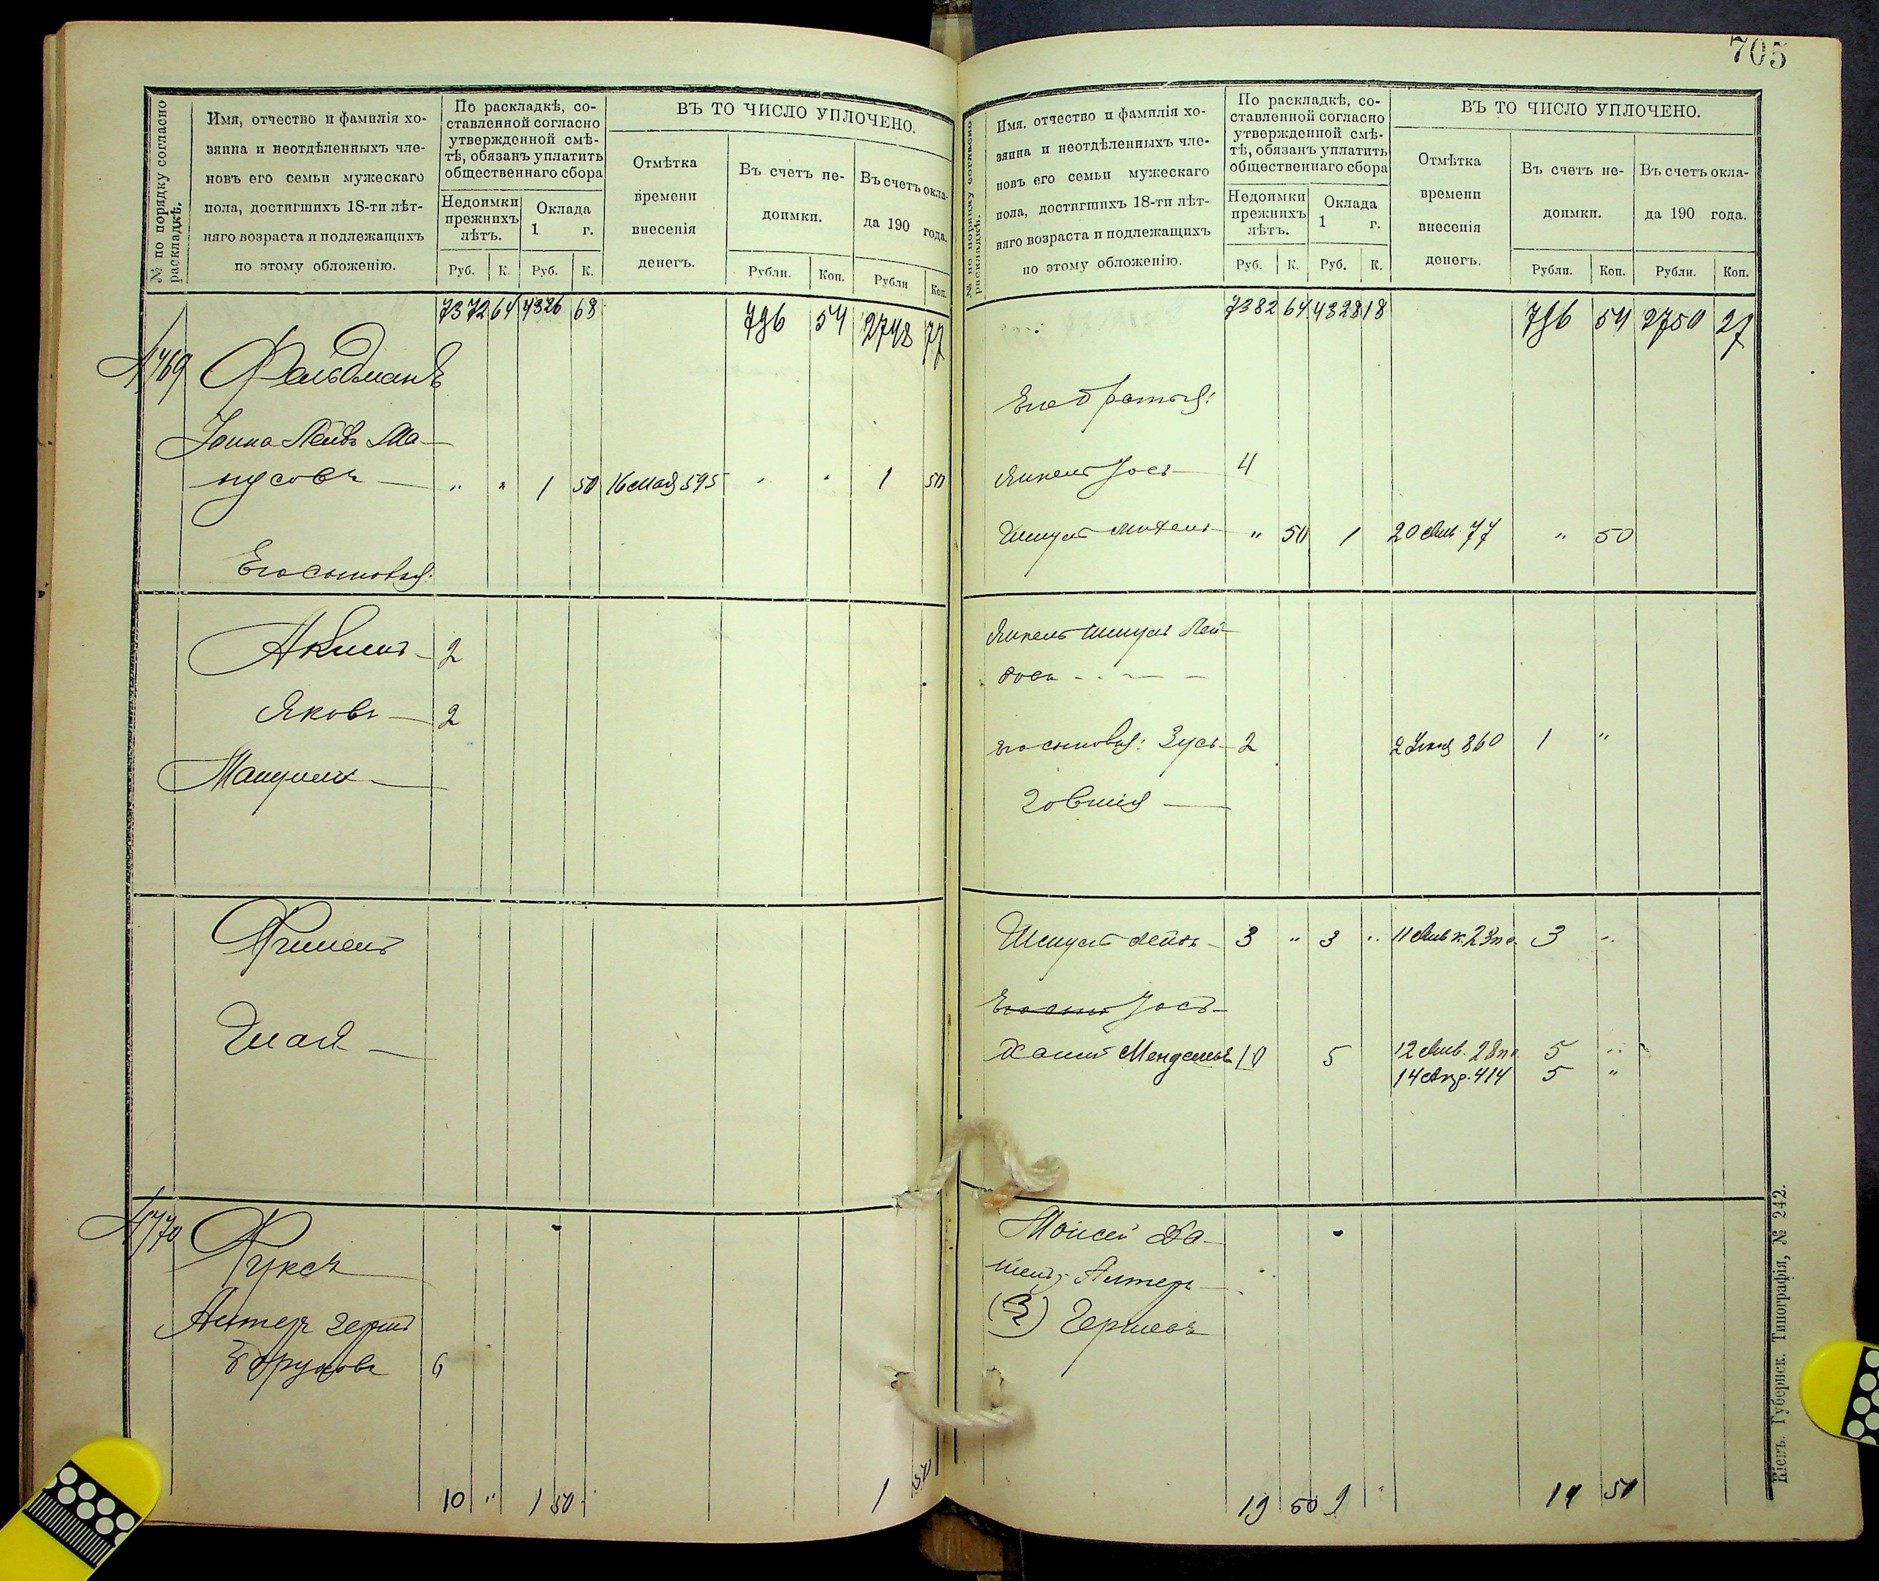 705
№ по порядку согласно раскладкѣ.
Имя, отчество и фамилія хо-
зяина и неотдѣленныхъ чле-
новъ его семьи мужескаго
пола, достигшихъ 18-ти лѣт-
няго возраста и подлежащихъ
по этому обложенію.
По раскладкѣ, со-
ставленной согласно
утвержденной смѣ-
тѣ, обязанъ уплатить
общественнаго сбора
Недоимки
прежнихъ
лѣтъ.
Оклада
1 г.
Руб. К. Руб. К.
ВЪ ТО ЧИСЛО УПЛОЧЕНО.
Отмѣтка
времени
внесенія
денегъ.
Въ счетъ не-
доимки.
Въ счетъ окла-
да 190 года.
Рубли. Коп. Рубли Коп.
7372 64 4326 68 796 54 2748 77
769 Фельдманъ
Іоина Лейбъ Ма-
нусовъ — „ „ 1 50 16 Мая 595 „ „ 1 50
Его сыновья:
2
Яковъ — 2
Фишель
770 Фуксъ
Алтеръ Гершъ
Боруховъ 6
10 „ 1 50 1 50
№ по порядку согласно раскладкѣ.
Имя, отчество и фамилія хо-
зяина и неотдѣленныхъ чле-
новъ его семьи мужескаго
пола, достигшихъ 18-ти лѣт-
няго возраста и подлежащихъ
по этому обложенію.
По раскладкѣ, со-
ставленной согласно
утвержденной смѣ-
тѣ, обязанъ уплатить
общественнаго сбора
Недоимки
прежнихъ
лѣтъ.
Оклада
1 г.
Руб. К. Руб. К.
ВЪ ТО ЧИСЛО УПЛОЧЕНО.
Отмѣтка
времени
внесенія
денегъ.
Въ счетъ не-
доимки.
Въ счетъ окла-
да 190 года.
Рубли. Коп. Рубли. Коп.
7382 64 4328 18 796 54 2750 27
Его братья:
Янкель Іось — 4
Шмуль Михель — „ 50 1 20 Янв. 77 „ 50
Янкель Шмуль Лей-
бовъ
его сыновья: Зусь — 2 2 860 1 „
Говшія —
Шмуль Лейбъ — 3 „ 3 „ 11 Янв. 3 „
Его сынъ Іось —
Хаимъ Менделевъ 10 5 12 Янв. 28 5 „
14 Апр. 414 5 „
Моисей Да-
Алтеръ —
Гершевъ
19 50 9 „ 14 50
Кіевъ. Губернск. Типографія, № 242.